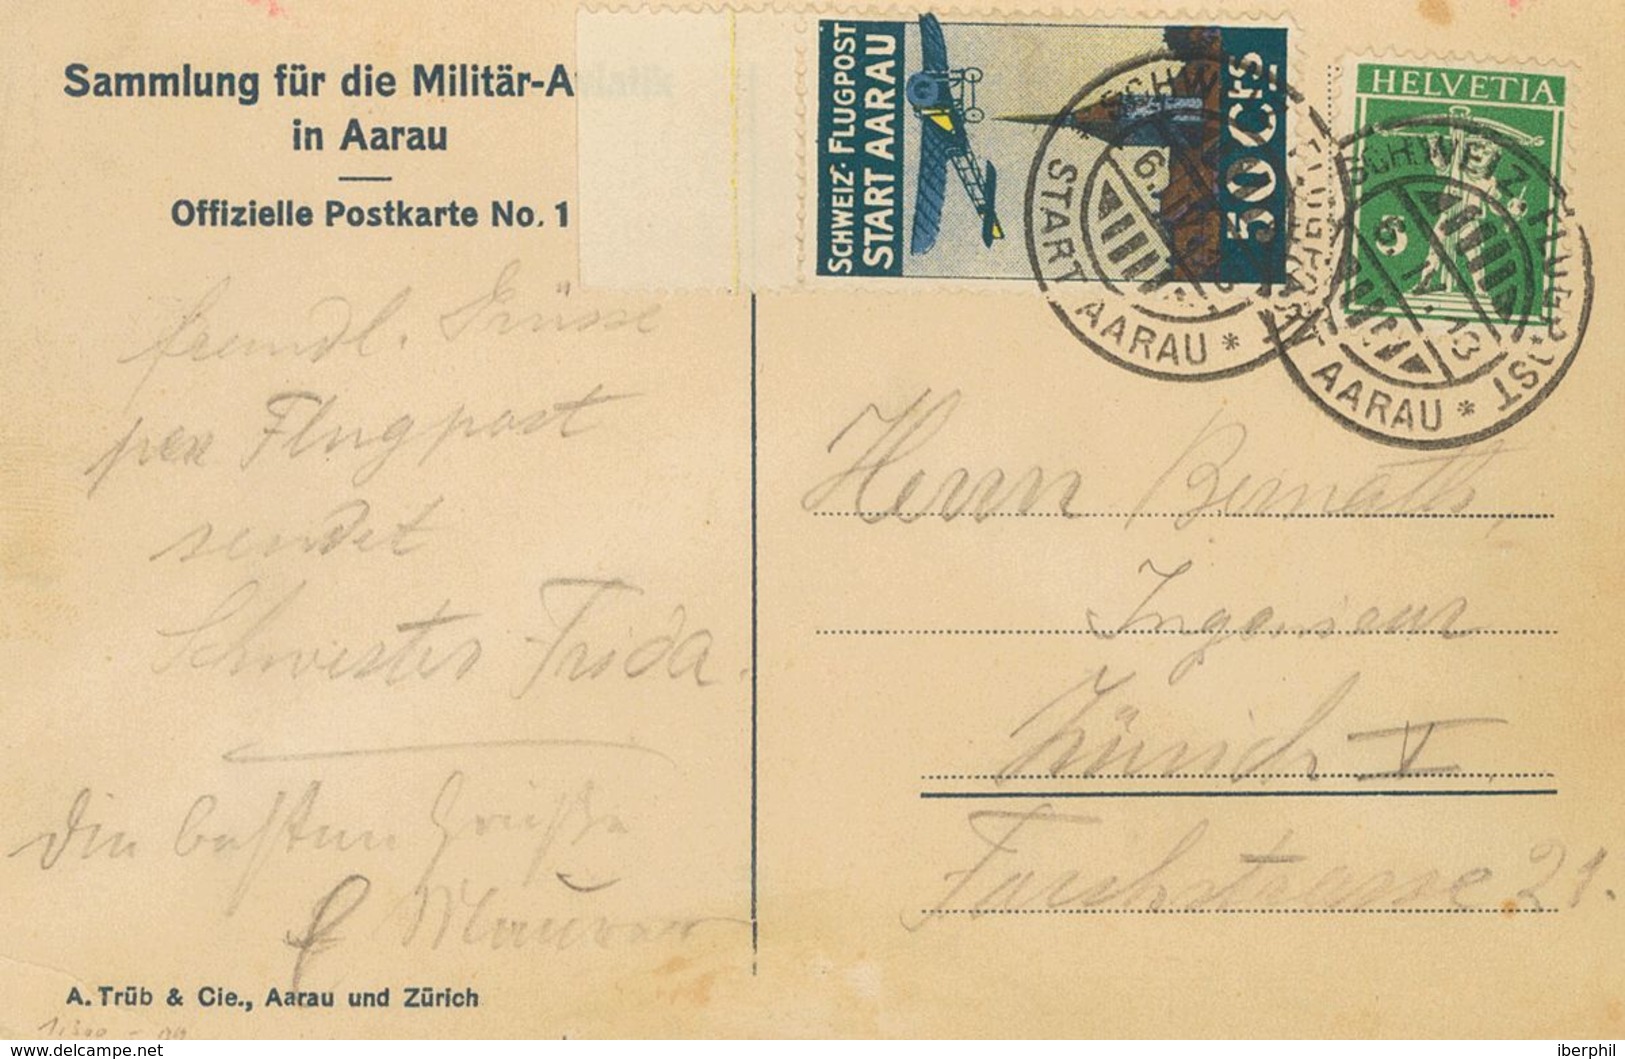 Sammlung für die Militär-Aviatik
in Aarau
Offizielle Postkarte No. 1
SCHWEIZ. FLUGPOST
START AARAU
50 Cts
HELVETIA
5
SCHWEIZ. FLUGPOST
START AARAU *
6. IV. 13
SCHWEIZ. FLUGPOST
START AARAU *
6. IV. 13
freundl. Grüsse
per Flugpost
sendet
Schwester Frida.
Die besten Grüße
Maurer
Herrn Bernath,
Ingenieur
Zürich V.
Forchstrasse 21.
A. Trüb & Cie., Aarau und Zürich
delcampe.net
iberphil